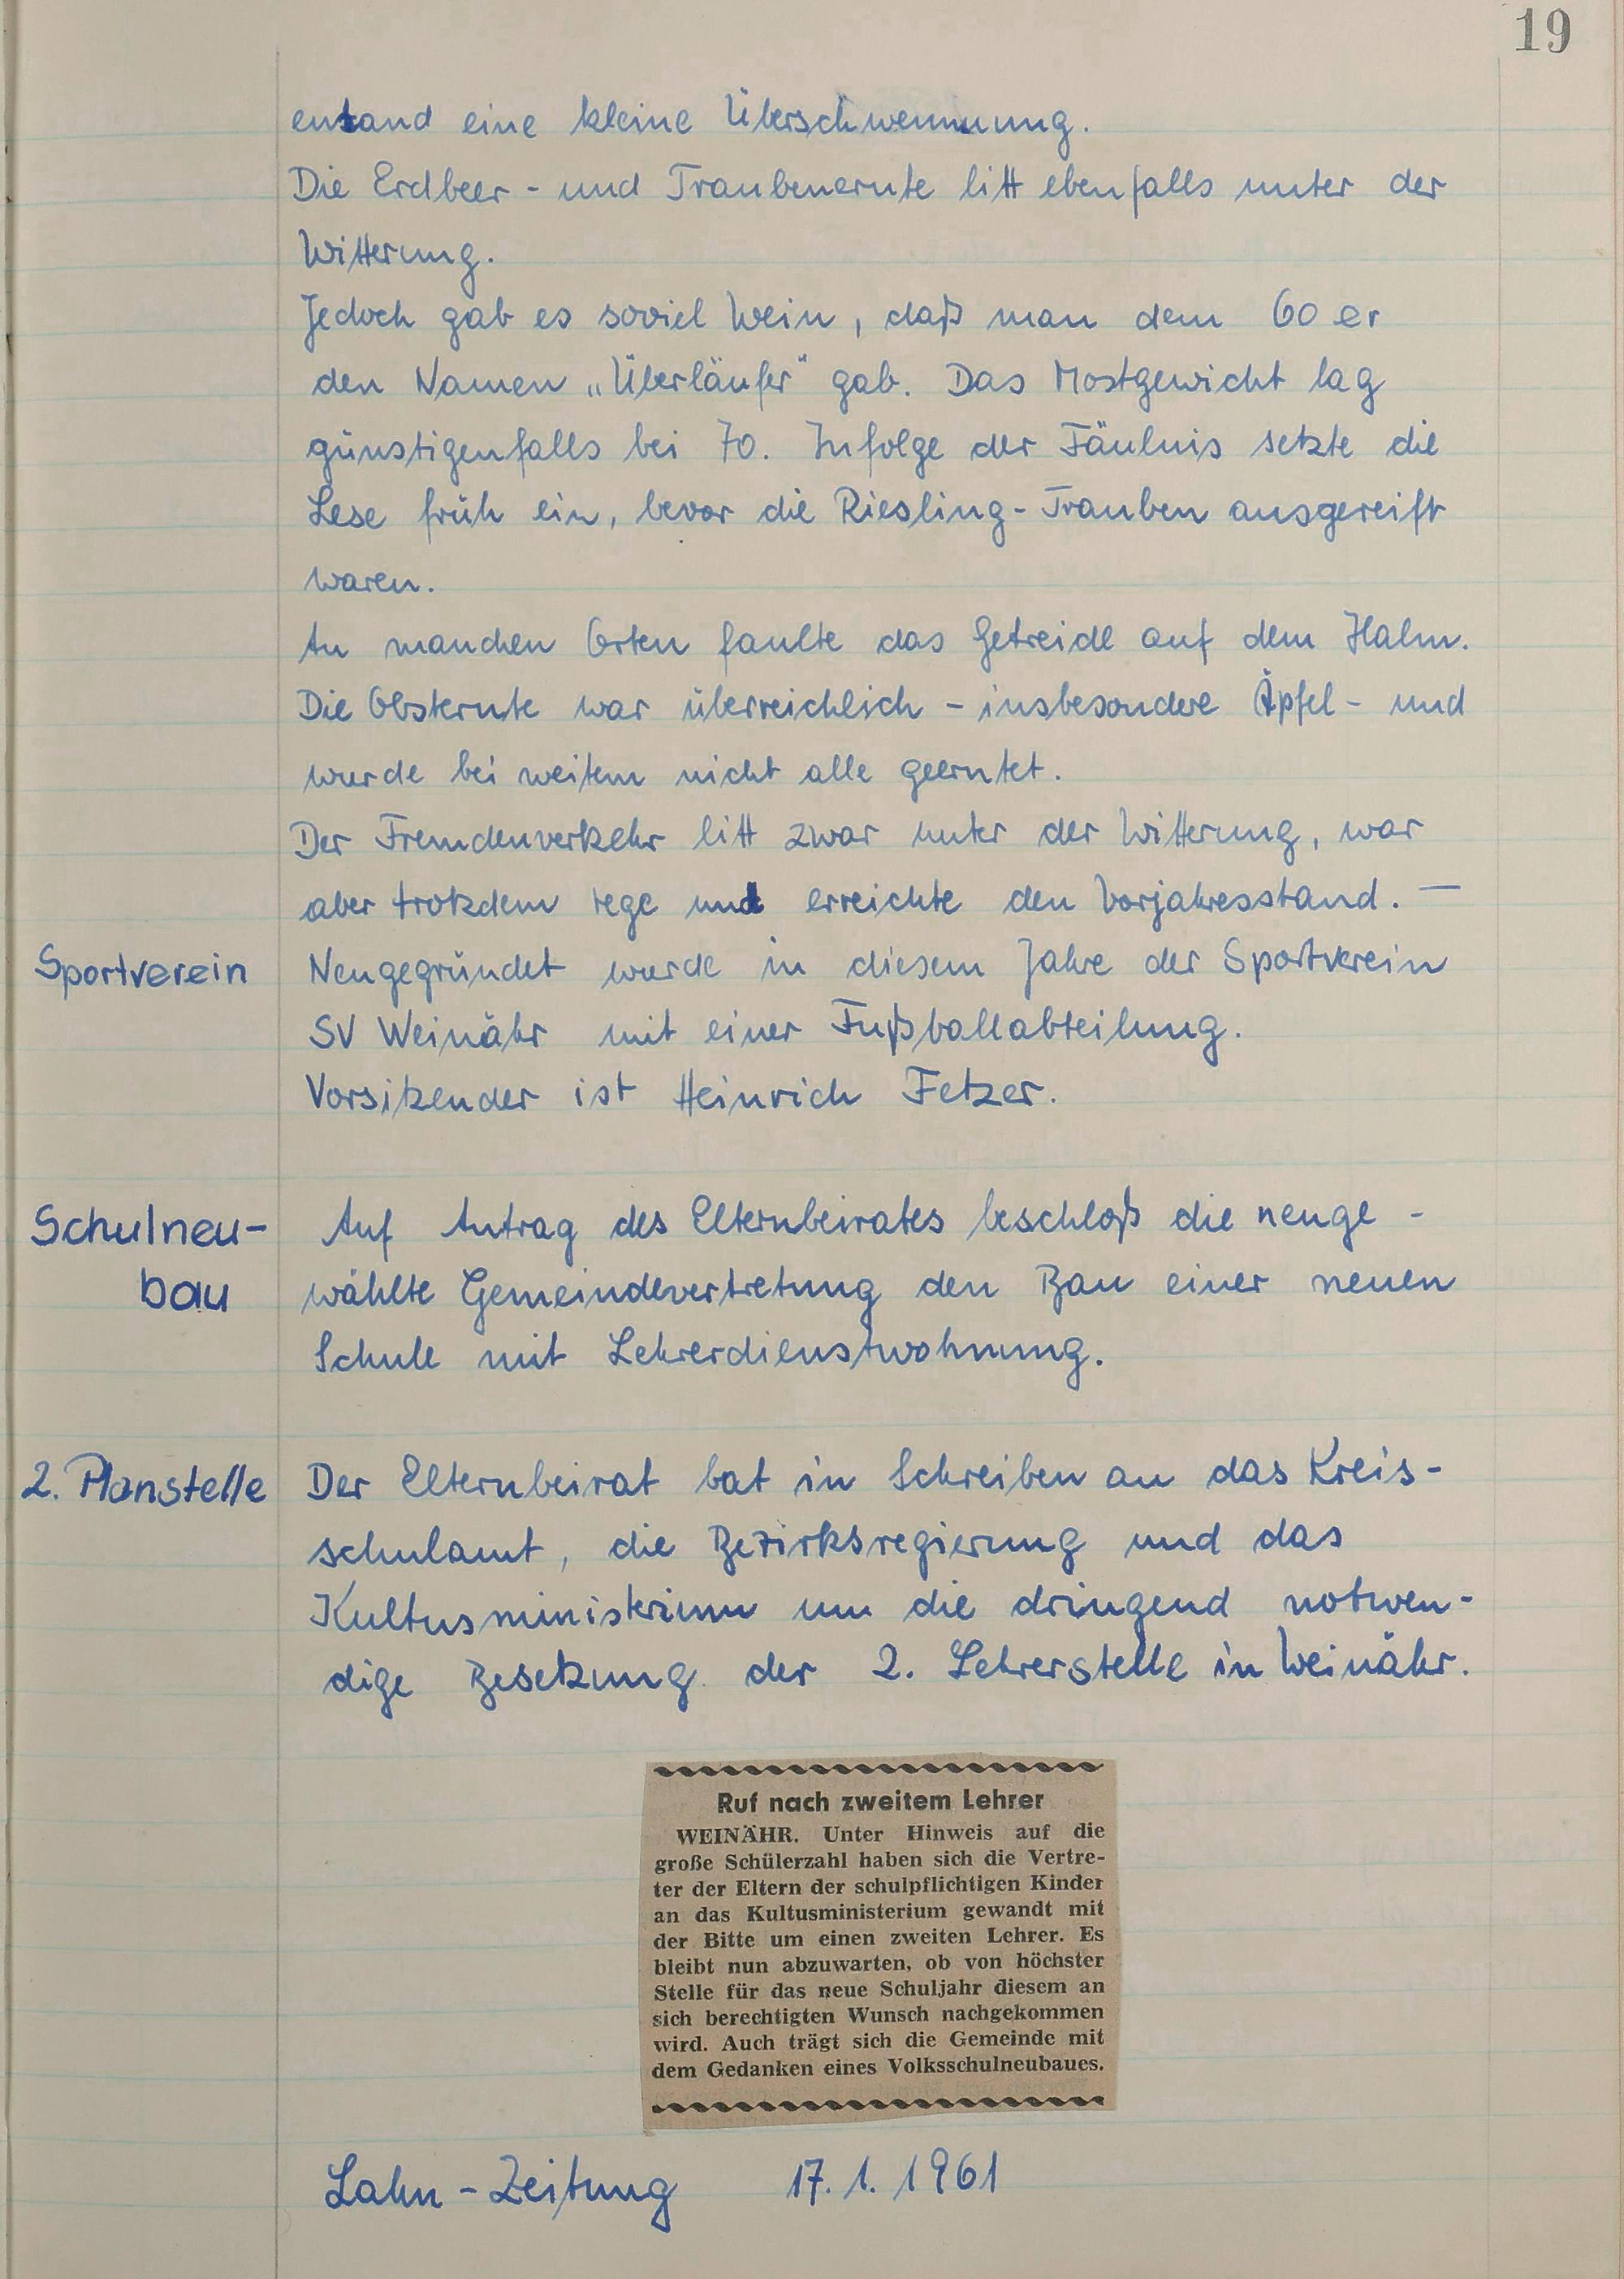 19
entstand eine kleine Überschwemmung.
Die Erdbeer- und Traubenernte litt ebenfalls unter der
Witterung.
Jedoch gab es soviel Wein, daß man dem 60er
den Namen „Überläufer" gab. Das Mostgewicht lag
günstigenfalls bei 70. Infolge der Fäulnis setzte die
Lese früh ein, bevor die Riesling-Trauben ausgereift
waren.
An manchen Orten faulte das Getreide auf dem Halm.
Die Obsternte war überreichlich - insbesondere Äpfel - und
wurde bei weitem nicht alle geerntet.
Der Fremdenverkehr litt zwar unter der Witterung, war
aber trotzdem rege und erreichte den Vorjahresstand. —
Sportverein Neugegründet wurde in diesem Jahre der Sportverein
SV Weinähr mit einer Fußballabteilung.
Vorsitzender ist Heinrich Fetzer.
Schulneu- Auf Antrag des Elternbeirates beschloß die neuge-
bau wählte Gemeindevertretung den Bau einer neuen
Schule mit Lehrerdienstwohnung.
2. Planstelle Der Elternbeirat bat in Schreiben an das Kreis-
schulamt, die Bezirksregierung und das
Kultusministerium um die dringend notwen-
dige Besetzung der 2. Lehrerstelle in Weinähr.
Ruf nach zweitem Lehrer
WEINÄHR. Unter Hinweis auf die
große Schülerzahl haben sich die Vertre-
ter der Eltern der schulpflichtigen Kinder
an das Kultusministerium gewandt mit
der Bitte um einen zweiten Lehrer. Es
bleibt nun abzuwarten, ob von höchster
Stelle für das neue Schuljahr diesem an
sich berechtigten Wunsch nachgekommen
wird. Auch trägt sich die Gemeinde mit
dem Gedanken eines Volksschulneubaues.
Lahn-Zeitung 17.1.1961